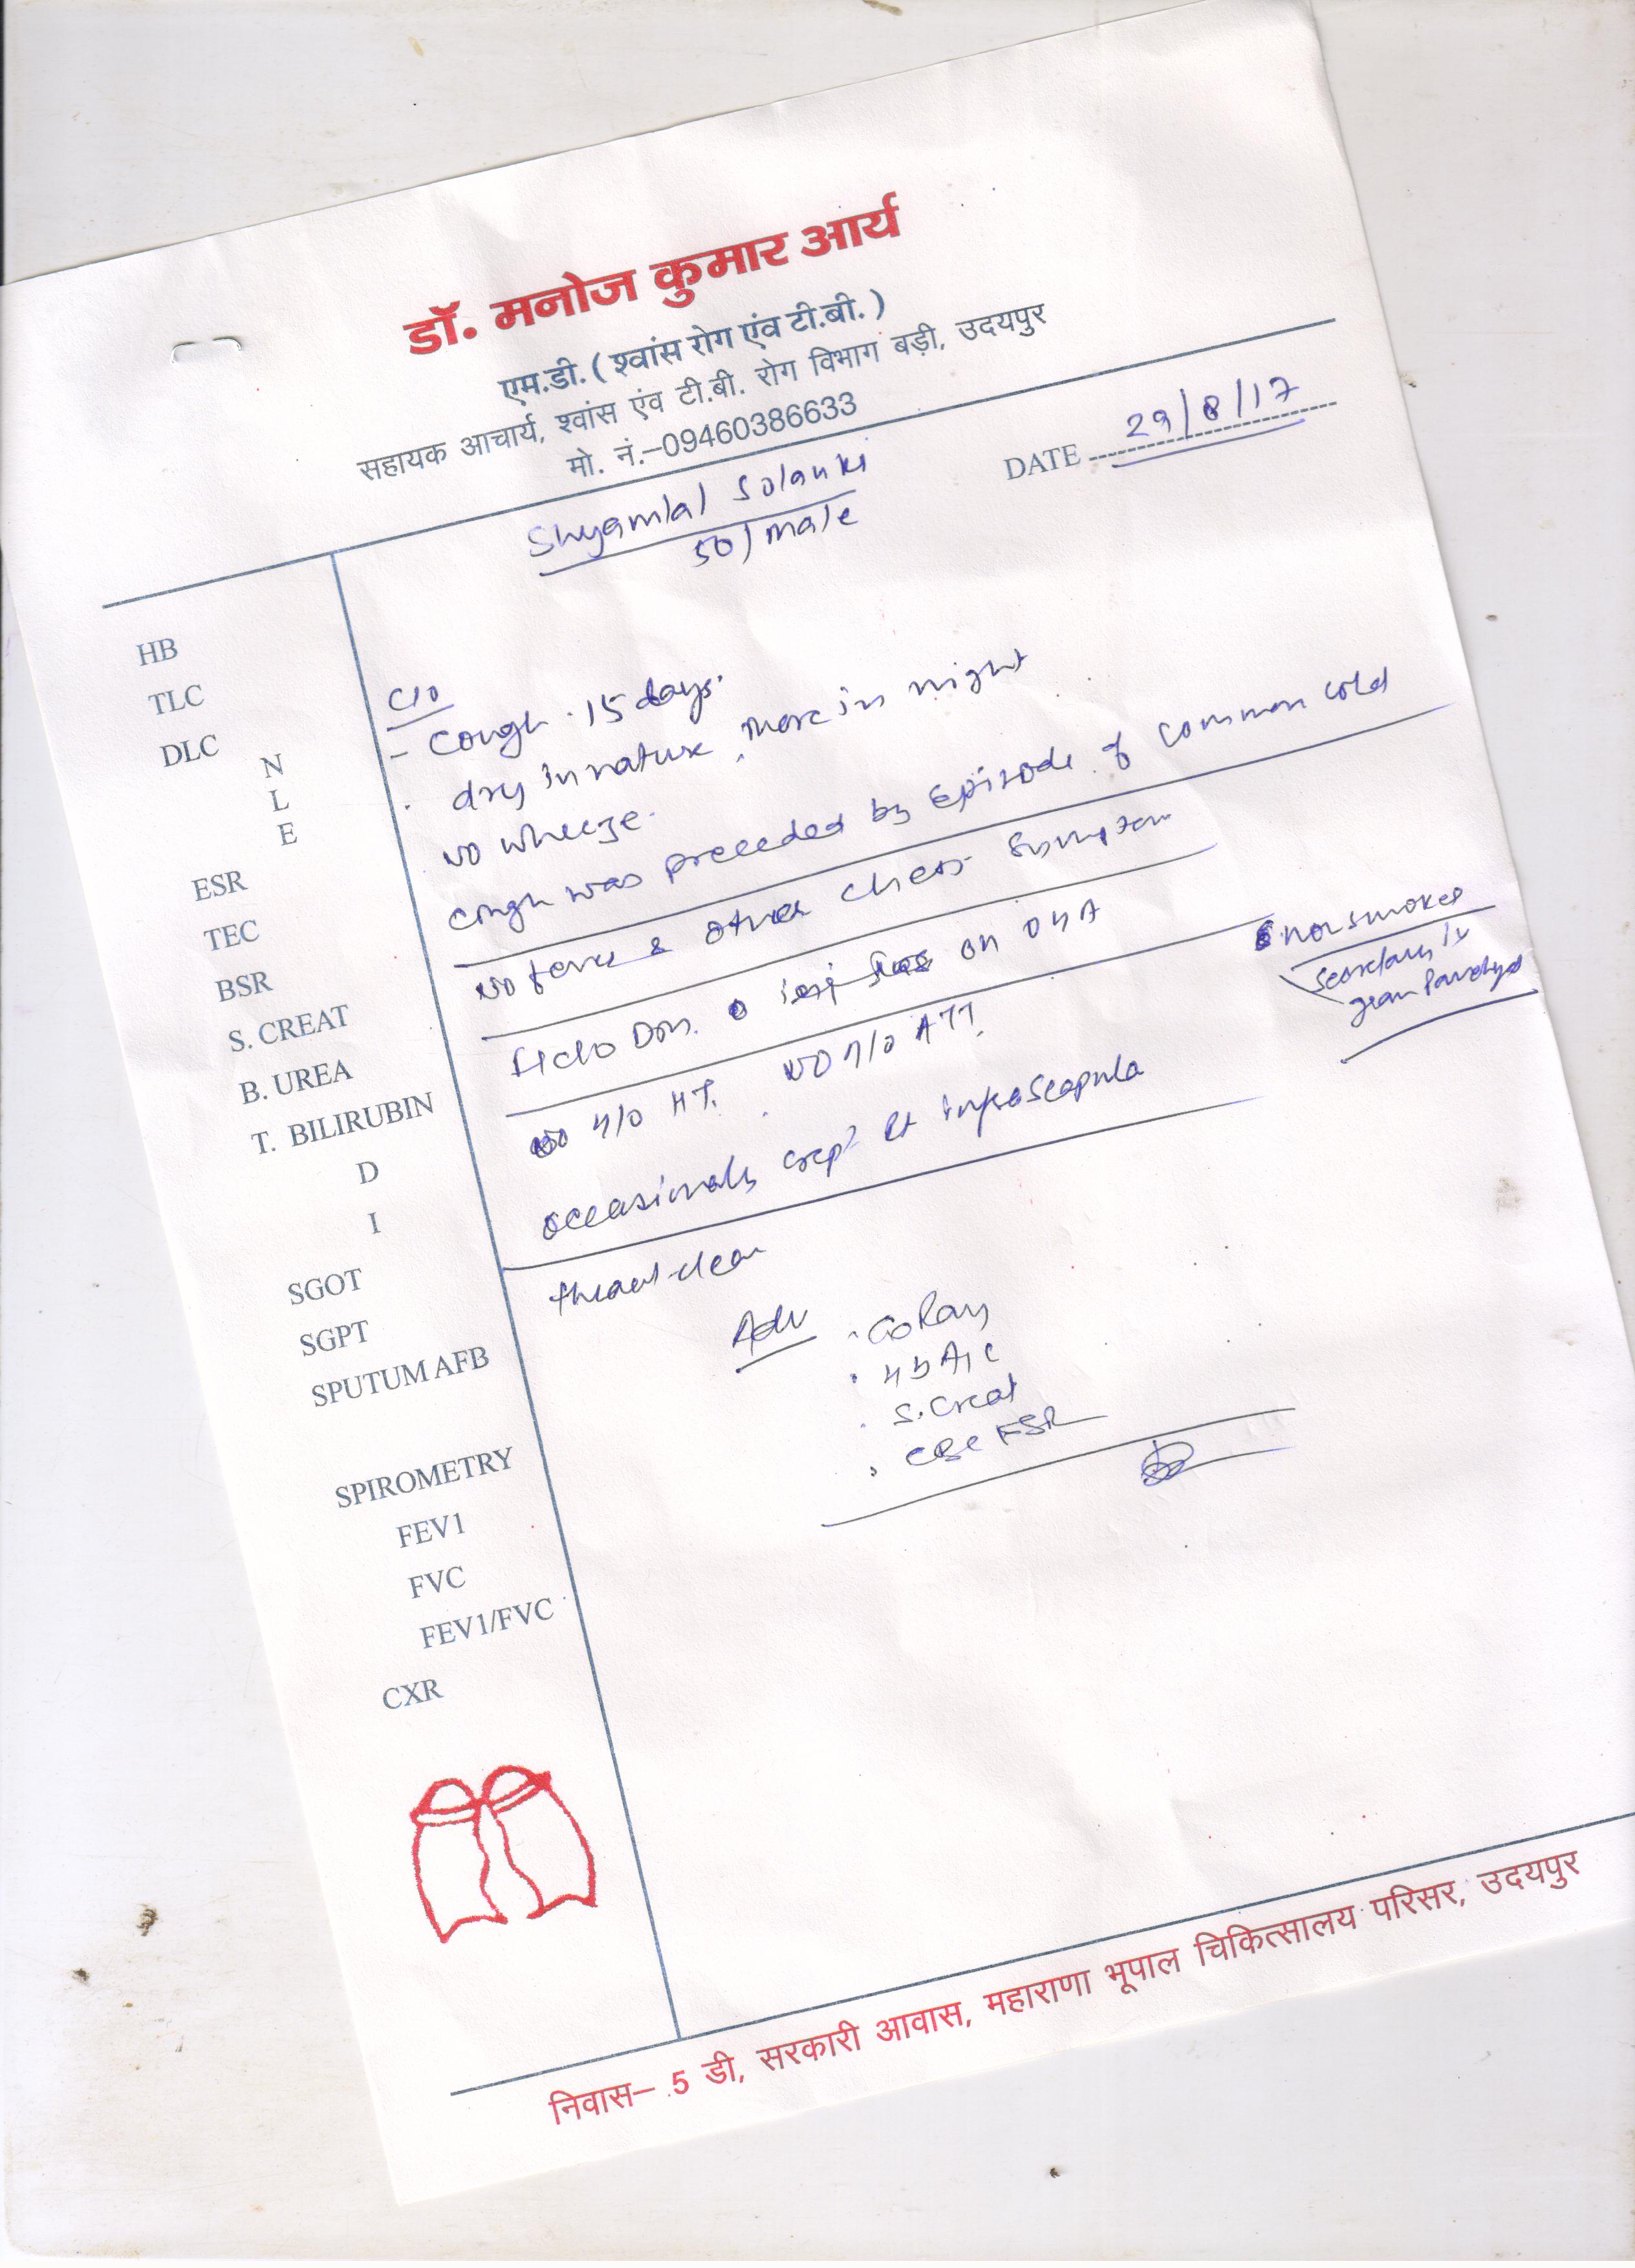 डॉ. मनोज कुमार आर्य
एम.डी. ( श्वांस रोग एंव टी.बी. )
सहायक आचार्य, श्वांस एंव टी.बी. रोग विभाग बड़ी, उदयपुर
मो. नं.–09460386633
DATE 29/8/17
Shyamlal Solanki
50/male
HB
TLC
DLC
N
L
E
ESR
TEC
BSR
S. CREAT
B. UREA
T. BILIRUBIN
D
I
SGOT
SGPT
SPUTUM AFB
SPIROMETRY
FEV1
FVC
FEV1/FVC
CXR
C/o
- Cough . 15 days.
. dry in nature, more in night
No wheeze.
Cough was preceded by Episode of common cold
No fever & other chest symptom
on OHA
Nonsmoker
Secretary in
gram Panchayat
No H/O HT. NO H/O ATT.
occasionally crept Rt infrascapula
throat-clear
Adv
. HbA1C
. S. Creat
. CBC ESR
निवास– 5 डी, सरकारी आवास, महाराणा भूपाल चिकित्सालय परिसर, उदयपुर